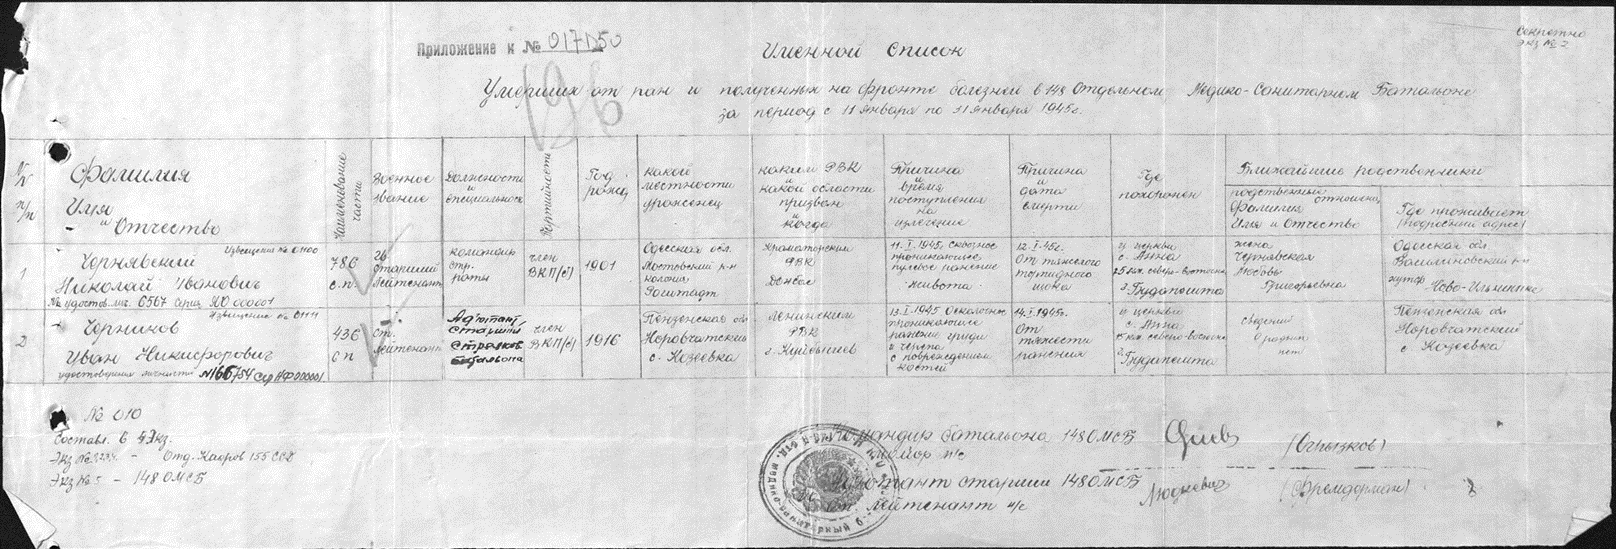 Секретно
Экз № 2
Приложение к № 017150
196
Именной список
Умерших от ран и полученных на фронте болезней в 148 Отдельном Медико-Санитарном Батальоне
за период с 11 января по 31 января 1945г.
№ п/п
Фамилия
Имя
и Отчество
Наименование части
Военное
звание
Должность
и
специальность
Партийность
Год
рожд
какой
местности
уроженец
каким РВК
и
какой области
призван
и
когда
Причина
и
время
поступления
на
излечение
Причина
и
дата
смерти
Где
похоронен
Ближайшие родственники
родственные отношен.
Фамилия
Имя и Отчество
Где проживает
(подробный адрес)
1
Извещение № 0100
Чернявский
Николай Иванович
№ удостов. лич. 0567 серия ЯО 000001
786
с.п
гв.
старший
Лейтенант
командир
стр.
роты
член
ВКП(б)
1901
Одесская обл.
Мостовский р-н
колония
Рогштадт
Краматорским
РВК
Донбас
11.I.1945, сквозное
проникающее
пулевое ранение
живота
12.I.45г.
От тяжелого
шока
у церкви
с. Анна
25 км. северо-восточн.
г. Будапешта
жена
Чернявская
Любовь
Григорьевна
Одесская обл.
р-н
хутор
Ново-
2
Извещение № 0111
Черников
Иван Никифорович
удостоверения личности № 166754 Сер НФ 000001
436
сп
ст.
Лейтенант
Адютант
старший
стрелков.
батальона
член
ВКП(б)
1916
Пензенская обл
Наровчатский
с. Козеевка
Ленинским
РВК
г. Куйбышев
13.I.1945 Осколочное
проникающие
ранение груди
и черепа
с повреждением
костей
14.I.1945г.
От
тяжести
ранения
у церкви
с. Анна
25 км. северо-восточн.
г. Будапешта
сведений
о родных
нет
Пензенская обл
Наровчатский
с Козеевка
№ 010
Составл. в 5 Экз.
Отд. Кадров 155 ССД
Экз № 5 – 148 ОМСБ
Командир батальона 148 ОМСБ
майор м/с
(Огрызков)
Адютант старший 148 ОМСБ
Лейтенант м/с